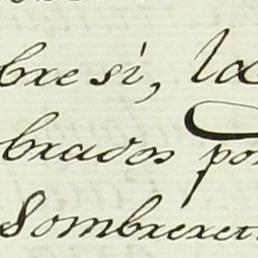 bre si, la
brados por
Sombreret